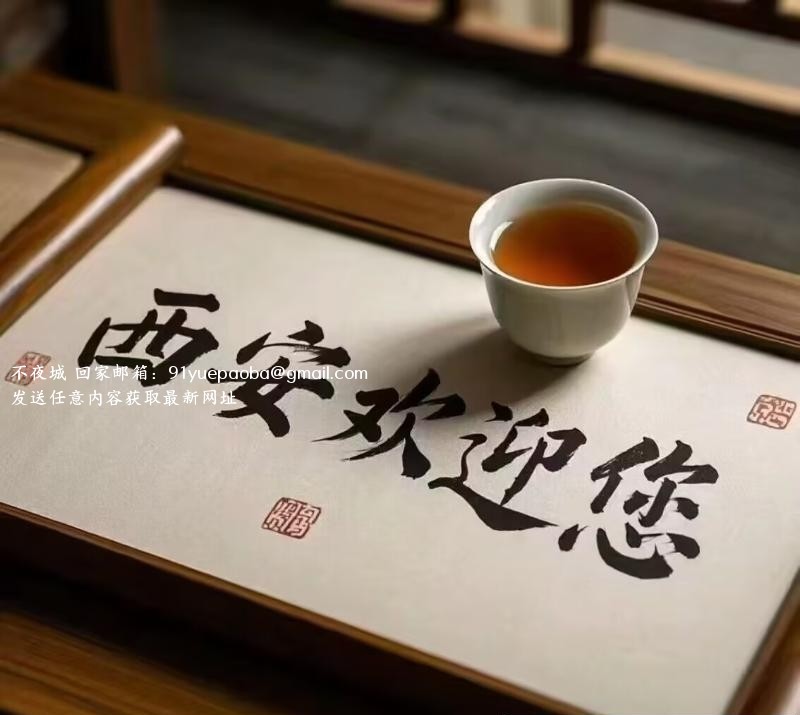 西安欢迎您
不夜城 回家邮箱：91yuepaoba@gmail.com
发送任意内容获取最新网址